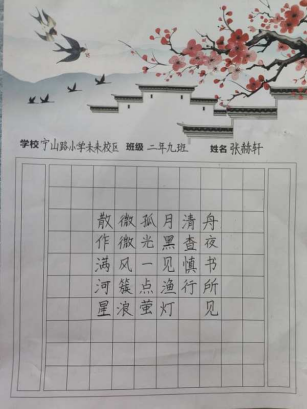 学校 宁山路小学未来校区 班级 二年九班 姓名 张赫轩
舟夜书所见
清查慎行
月黑见渔灯
孤光一点萤
微微风簇浪
散作满河星